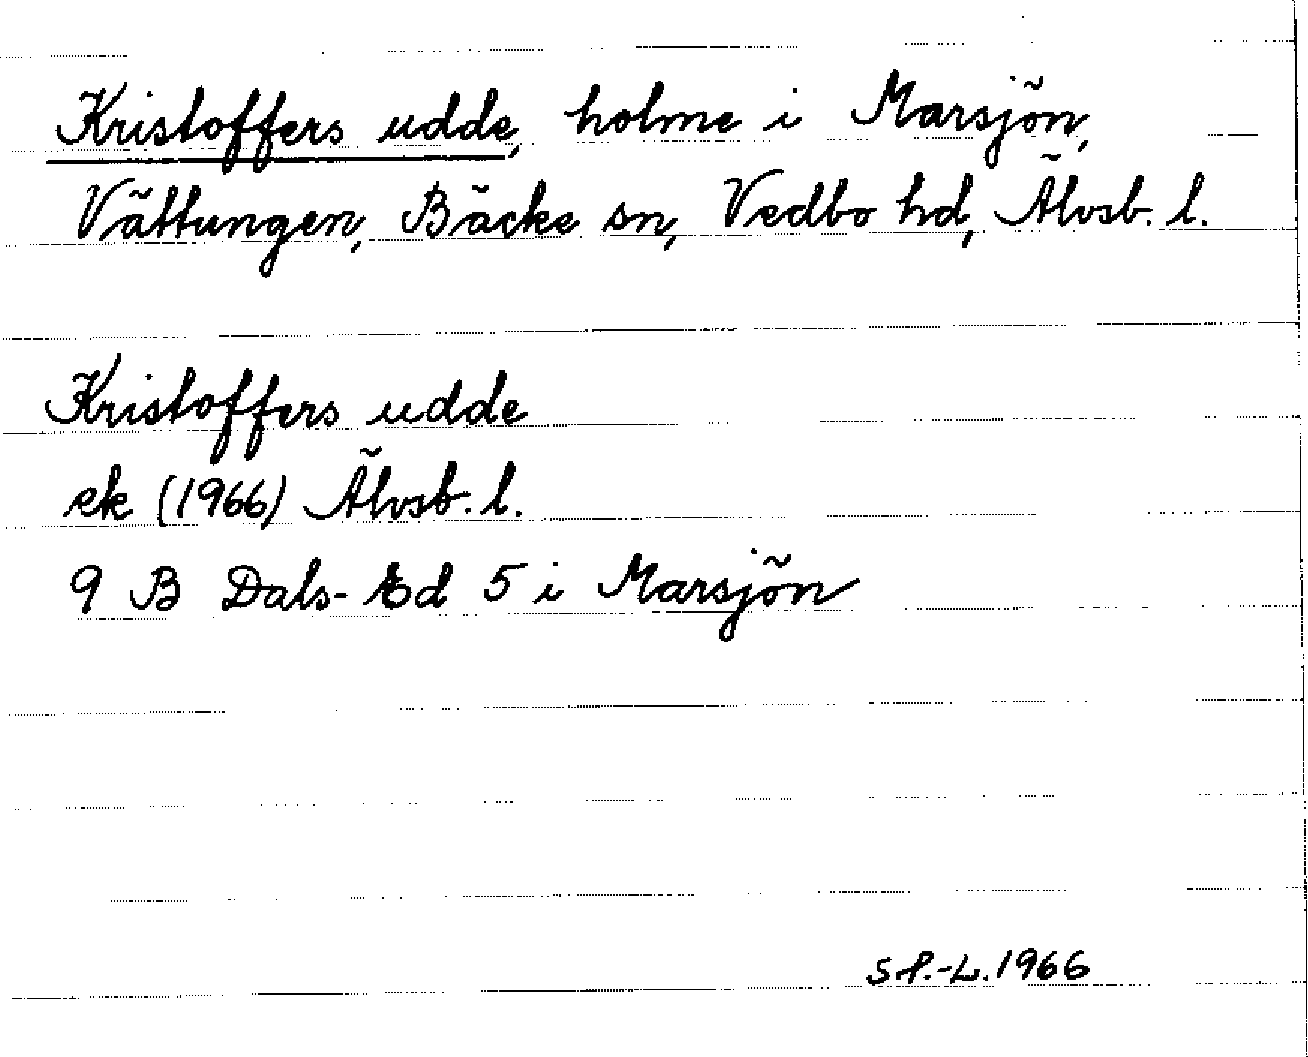 Kristoffers udde, holme i Marsjön,
Vättungen, Bäcke sn, Vedbo hd, Älvsb. l.
Kristoffers udde
ek (1966) Älvsb. l.
9 B Dals-Ed 5 i Marsjön
S P.-L. 1966